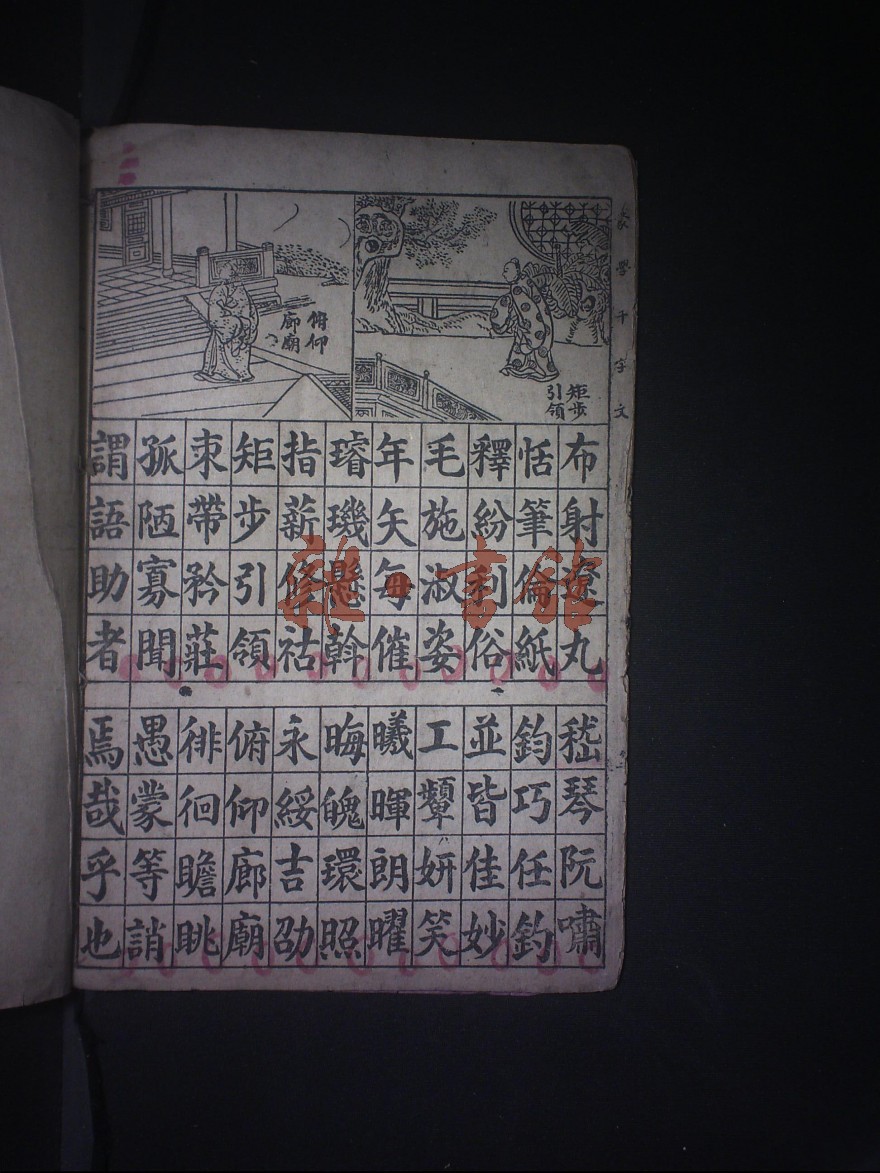 學千字文
矩步
引領
俯仰
廊廟
布射遼丸
嵇琴阮嘯
恬筆倫紙
鈞巧任釣
釋紛利俗
並皆佳妙
毛施淑姿
工顰妍笑
年矢每催
曦暉朗曜
璿璣懸斡
晦魄環照
指薪修祜
永綏吉劭
矩步引領
俯仰廊廟
束帶矜莊
徘徊瞻眺
孤陋寡聞
愚蒙等誚
謂語助者
焉哉乎也
雜·書館